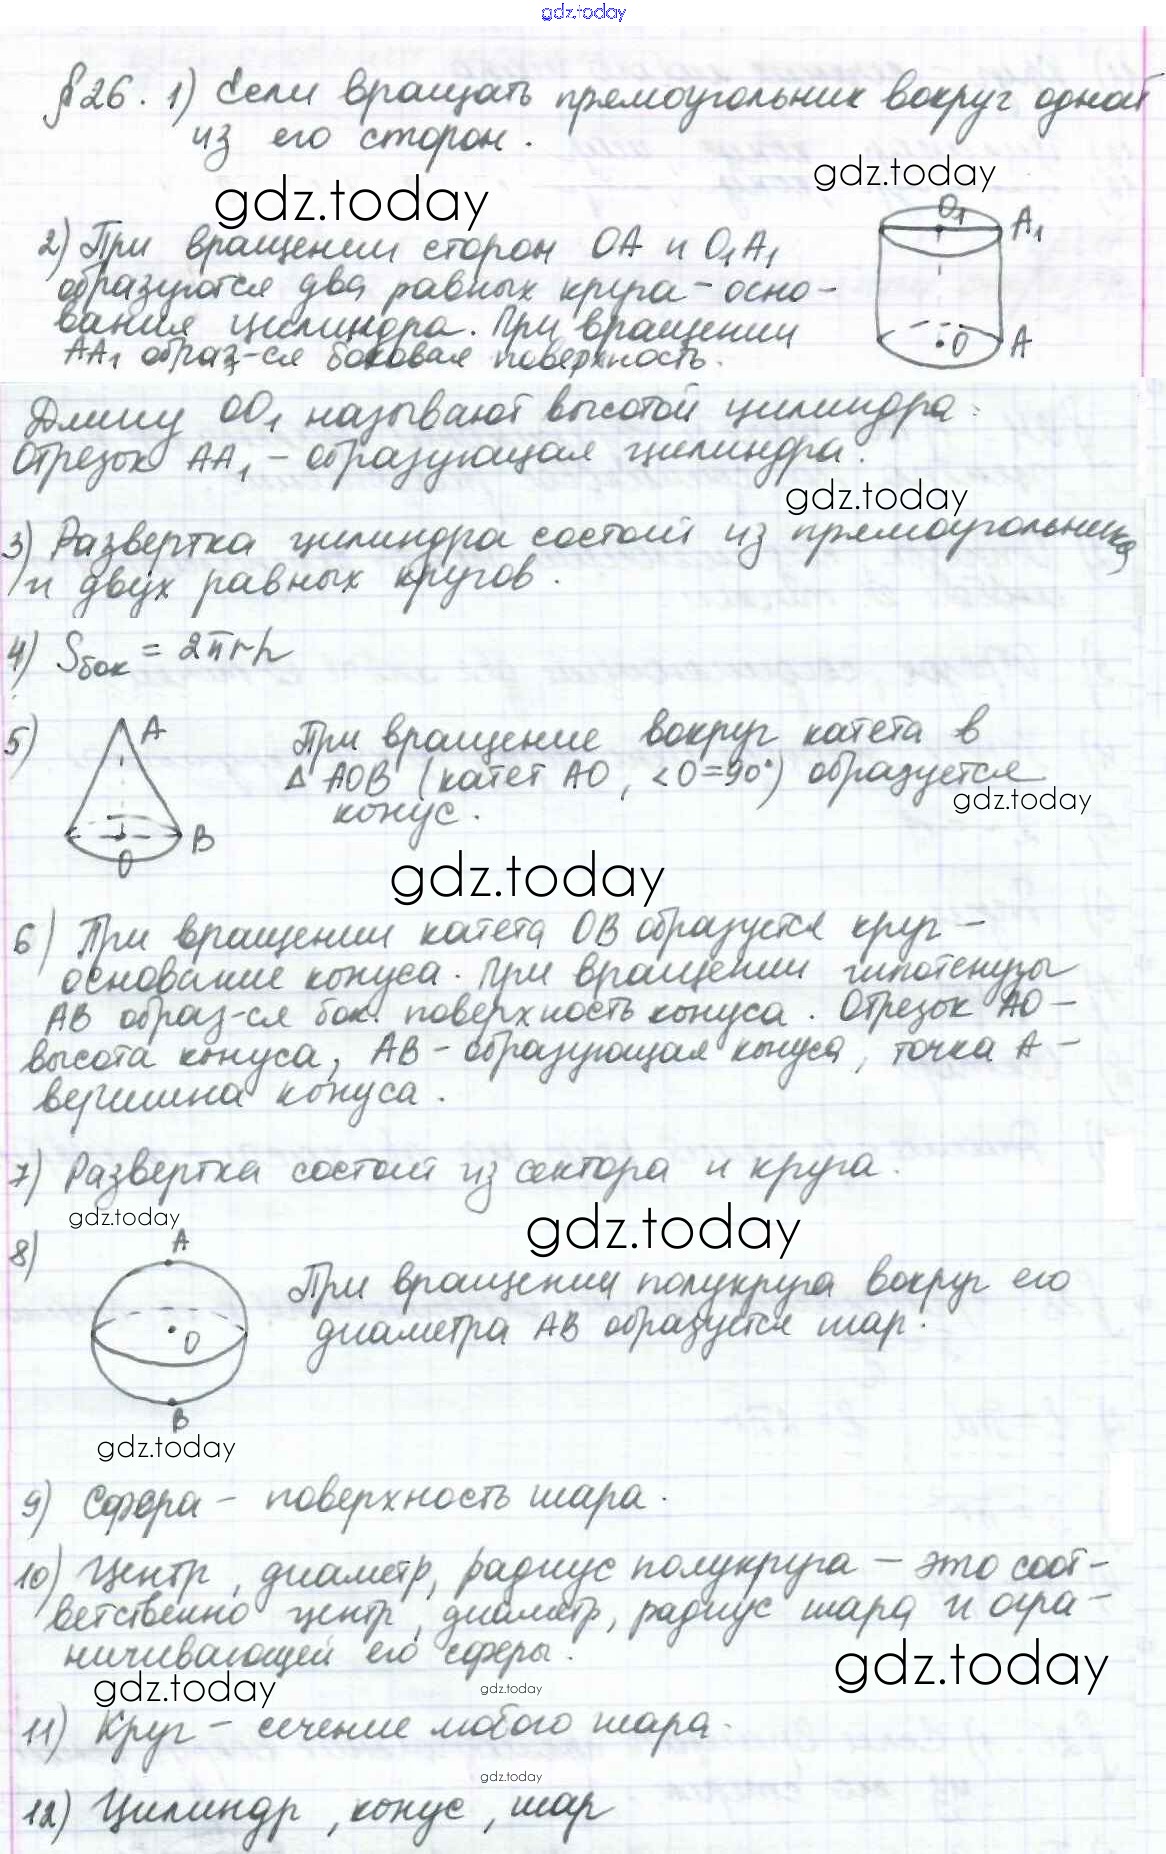 gdz.today
§26. 1) Если вращать прямоугольник вокруг одной
из его сторон.
gdz.today
gdz.today
2) При вращении сторон OA и O₁A₁
образуются два равных круга – осно-
вания цилиндра. При вращении
AA₁ образ-ся боковая поверхность.
O₁ A₁
O A
Длину OO₁ называют высотой цилиндра.
Отрезок AA₁ – образующая цилиндра.
gdz.today
3) Развертка цилиндра состоит из прямоугольника
и двух равных кругов.
4) Sбок = 2πrh
5) A
O B
При вращение вокруг катета в
Δ AOB (катет AO, <O=90°) образуется
gdz.today
конус.
gdz.today
6) При вращении катета OB образуется круг –
основание конуса. При вращении гипотенузы
AB образ-ся бок. поверхность конуса. Отрезок AO –
высота конуса, AB – образующая конуса, точка A –
вершина конуса.
7) Развертка состоит из сектора и круга.
gdz.today
gdz.today
8) A
O
B
При вращении полукруга вокруг его
диаметра AB образуется шар.
gdz.today
9) Сфера – поверхность шара.
10) Центр, диаметр, радиус полукруга – это соот-
ветственно центр, диаметр, радиус шара и огра-
ничивающей его сферы.
gdz.today
gdz.today
gdz.today
11) Круг – сечение любого шара.
gdz.today
12) Цилиндр, конус, шар